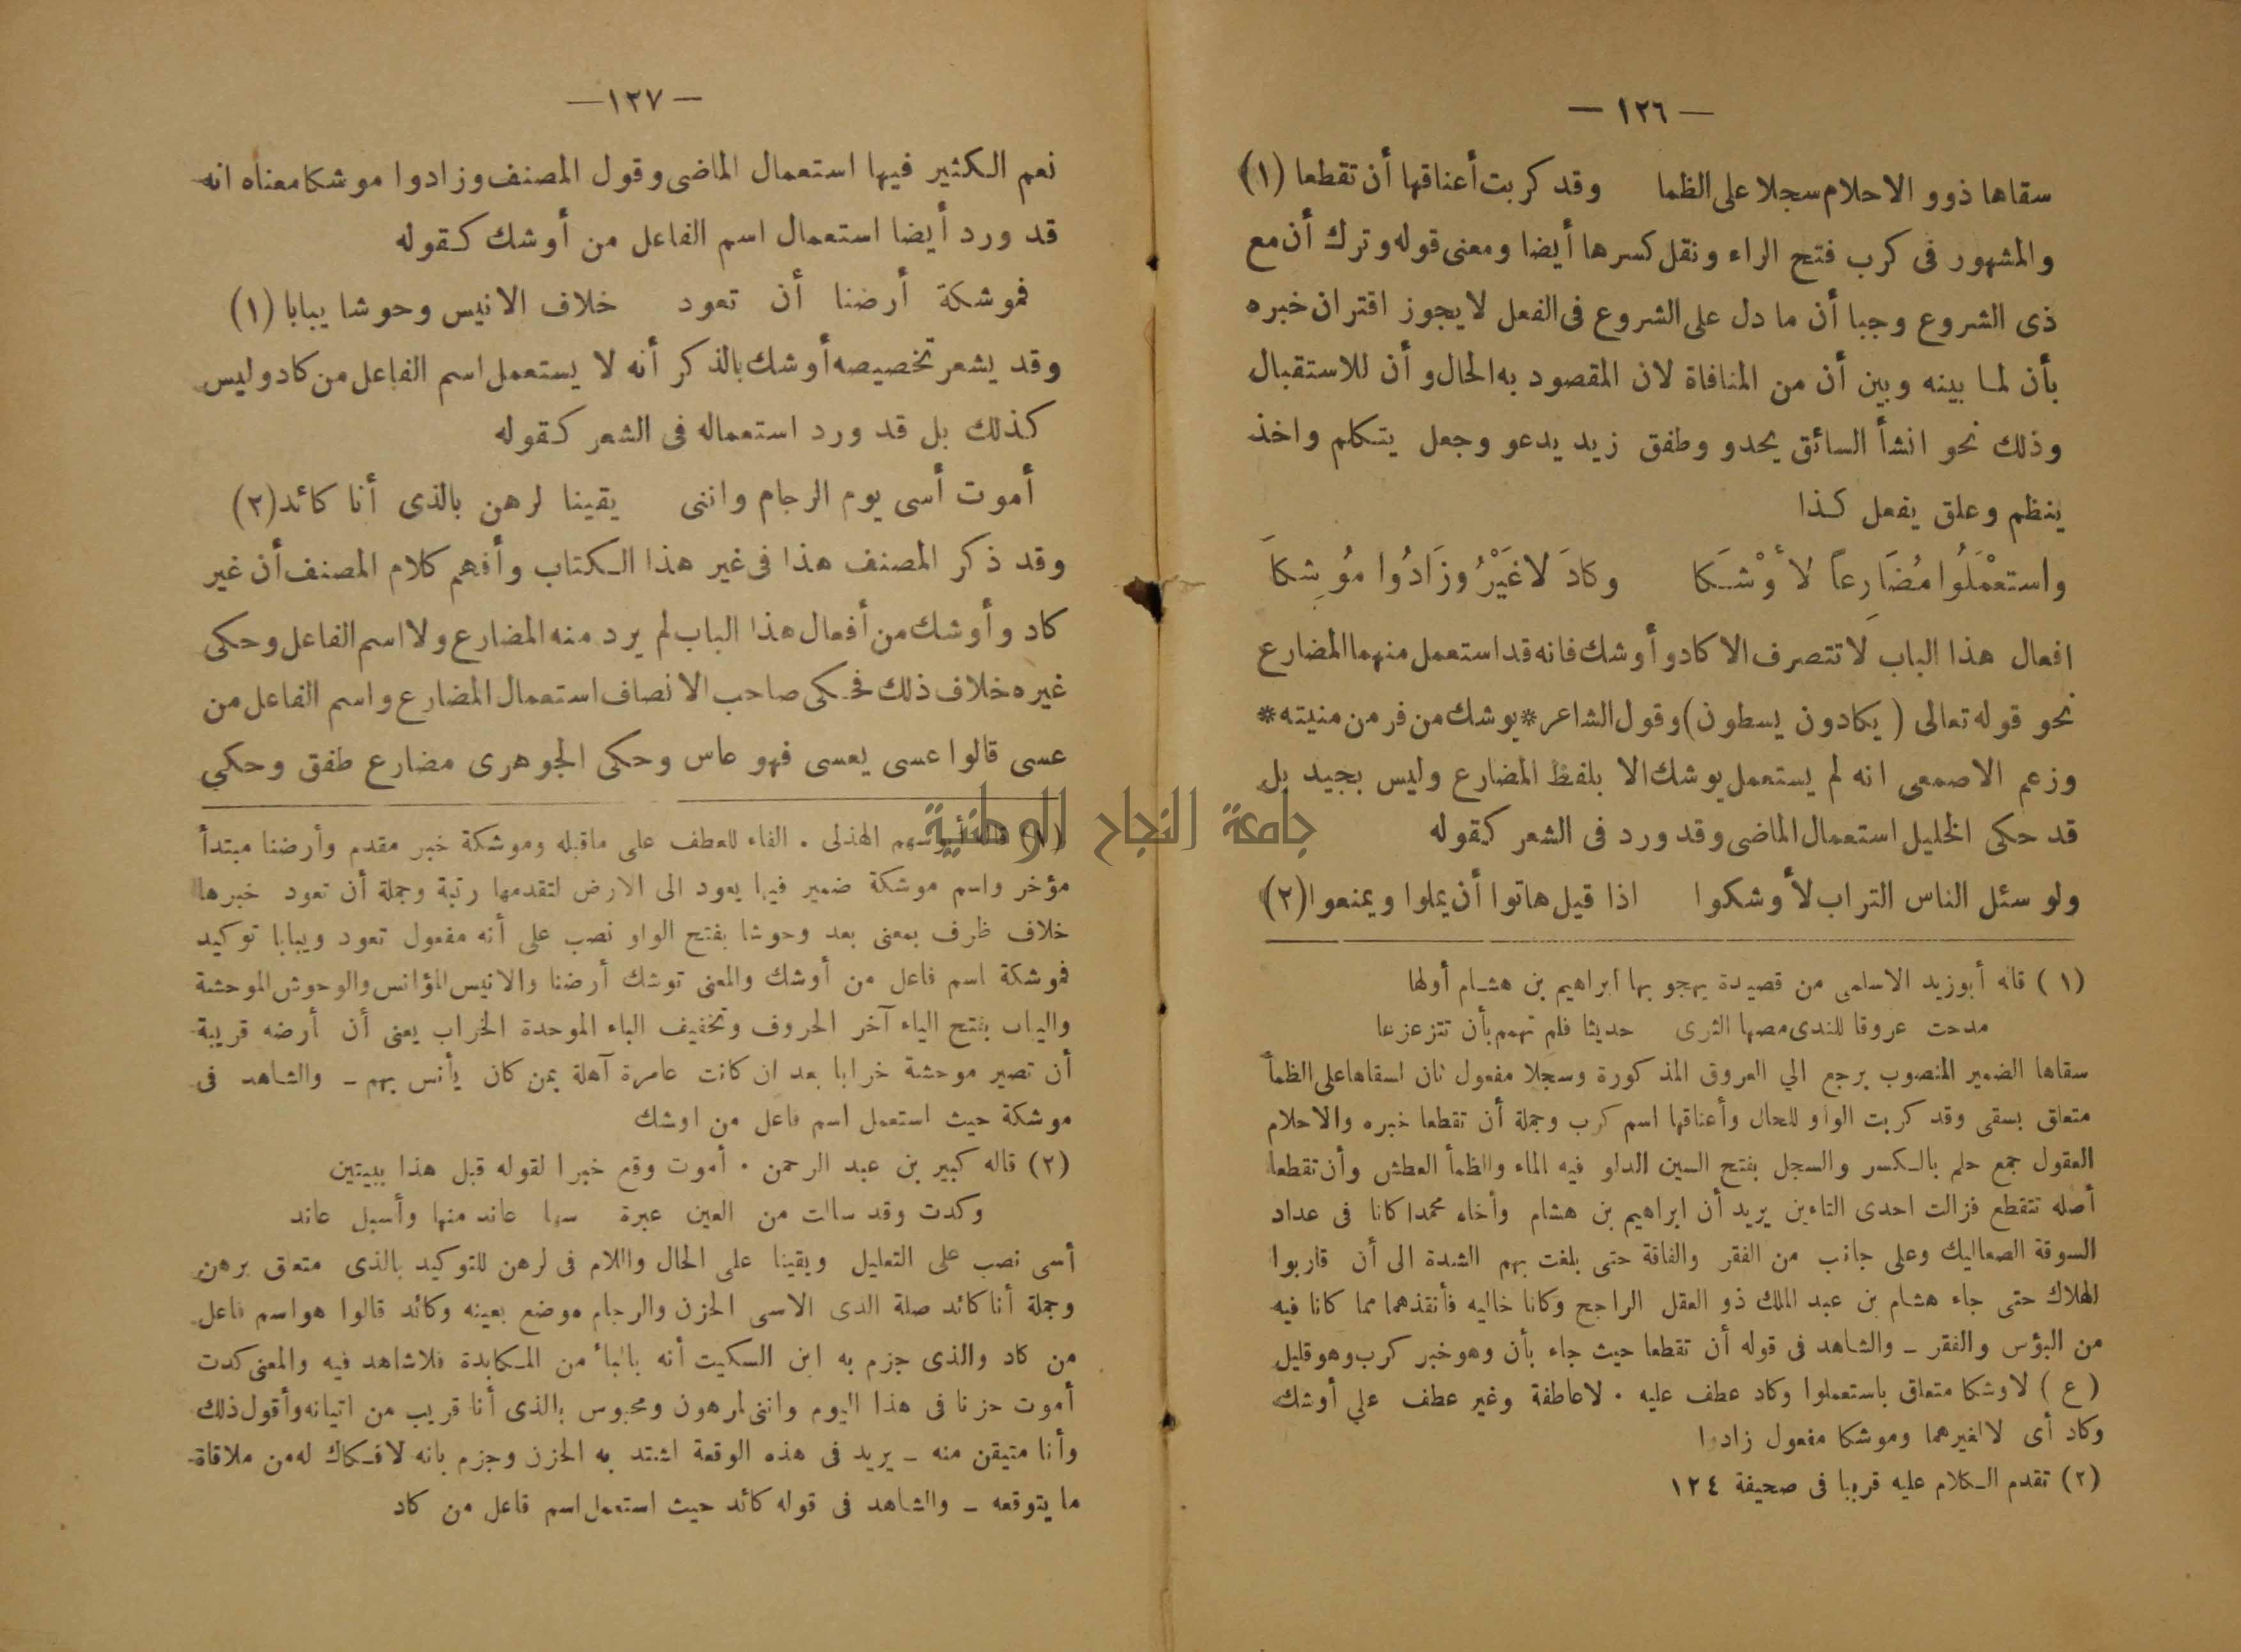 — ١٢٦ —
سقاها ذوو الاحلام سجلا على الظما وقد كربت أعناقها أن تقطعا (١)
والمشهور فى كرب فتح الراء ونقل كسرها أيضا ومعنى قوله وترك أن مع
ذى الشروع وجبا أن ما دل على الشروع فى الفعل لا يجوز اقتران خبره
بأن لما بينه وبين أن من المنافاة لان المقصود به الحال وأن للاستقبال
وذلك نحو انشأ السائق يحدو وطفق زيد يدعو وجعل يتكلم واخذ
ينظم وعلق يفعل كذا
واستعْمَلُوا مُضَارِعاً لأَوْشَكا وكادَ لا غَيْرُ وزَادُوا مُوشِكاَ
افعال هذا الباب لا تتصرف الا كاد وأوشك فانه قد استعمل منهما المضارع
نحو قوله تعالى (يكادون يسطون) وقول الشاعر * يوشك من فر من منيته *
وزعم الاصمعى انه لم يستعمل يوشك الا بلفظ المضارع وليس بجيد بل
قد حكى الخليل استعمال الماضى وقد ورد فى الشعر كقوله
ولو سئل الناس التراب لأوشكوا اذا قيل هاتوا أن يملوا ويمنعوا (٢)
(١) قاله أبوزيد الاسلمى من قصيدة يهجو بها ابراهيم بن هشام أولها
مدحت عروقا للندى مصها الثرى حديثا فلم تهمم بأن تتزعزعا
سقاها الضمير المنصوب يرجع الي العروق المذكورة وسجلا مفعول ثان لسقاها على الظمأ
متعلق بسقى وقد كربت الواو للحال وأعناقها اسم كرب وجملة أن تقطعا خبره والاحلام
العقول جمع حلم بالكسر والسجل بفتح السين الدلو فيه الماء والظمأ العطش وأن تقطعا
أصله تتقطع فزالت احدى التاءين يريد أن ابراهيم بن هشام وأخاه محمدا كانا فى عداد
السوقة الصعاليك وعلى جانب من الفقر والفاقة حتى بلغت بهم الشدة الى أن قاربوا
الهلاك حتى جاء هشام بن عبد الملك ذو العقل الراجح وكانا خاليه فأنقذهما مما كانا فيه
من البؤس والفقر ـ والشاهد فى قوله أن تقطعا حيث جاء بأن وهو خبر كرب وهو قليل
(ع) لاوشكا متعلق باستعملوا وكاد عطف عليه . لا عاطفة وغير عطف علي أوشك
وكاد أى لا لغيرهما وموشكا مفعول زادوا
(٢) تقدم الكلام عليه قريبا فى صحيفة ١٢٤
— ١٢٧ —
نعم الكثير فيها استعمال الماضى وقول المصنف وزادوا موشكا معناه انه
قد ورد أيضا استعمال اسم الفاعل من أوشك كقوله
فموشكة أرضنا أن تعود خلاف الانيس وحوشا يبابا (١)
وقد يشعر تخصيصه أوشك بالذكر أنه لا يستعمل اسم الفاعل من كاد وليس
كذلك بل قد ورد استعماله فى الشعر كقوله
أموت أسى يوم الرجام واننى يقينا لرهن بالذى أنا كائد (٢)
وقد ذكر المصنف هذا فى غير هذا الكتاب وأفهم كلام المصنف أن غير
كاد وأوشك من أفعال هذا الباب لم يرد منه المضارع ولا اسم الفاعل وحكى
غيره خلاف ذلك فحكى صاحب الانصاف استعمال المضارع واسم الفاعل من
عسى قالوا عسى يعسى فهو عاس وحكى الجوهرى مضارع طفق وحكي
جامعة النجاح الوطنية
(١) قاله أبو سهم الهذلى . الفاء للعطف على ماقبله وموشكة خبر مقدم وأرضنا مبتدأ
مؤخر واسم موشكة ضمير فيها يعود الى الارض لتقدمها رتبة وجملة أن تعود خبرها
خلاف ظرف بمعنى بعد وحوشا بفتح الواو نصب على أنه مفعول تعود ويبابا توكيد
فموشكة اسم فاعل من أوشك والمعنى توشك أرضنا والانيس المؤانس والوحوش الموحشة
والياب بفتح الياء آخر الحروف وتخفيف الباء الموحدة الخراب يعنى أن أرضه قريبة
أن تصير موحشة خرابا بعد ان كانت عامرة آهلة بمن كان يأنس بهم ـ والشاهد فى
موشكة حيث استعمل اسم فاعل من اوشك
(٢) قاله كبير بن عبد الرحمن . أموت وقع خبرا لقوله قبل هذا ببيتين
وكدت وقد سالت من العين عبرة سها عاند منها وأسبل عاند
أسى نصب على التعليل ويقينا على الحال واللام فى لرهن للتوكيد بالذى متعلق برهن
وجملة أنا كائد صلة الذى الاسى الحزن والرجام موضع بعينه وكائد قالوا هو اسم فاعل
من كاد والذى جزم به ابن السكيت أنه بالباء من المكابدة فلا شاهد فيه والمعنى كدت
أموت حزنا فى هذا اليوم واننى لمرهون ومحبوس بالذى أنا قريب من اتيانه وأقول ذلك
وأنا متيقن منه ـ يريد فى هذه الوقعة اشتد به الحزن وجزم بانه لا فكاك له من ملاقاة
ما يتوقعه ـ والشاهد فى قوله كائد حيث استعمل اسم فاعل من كاد